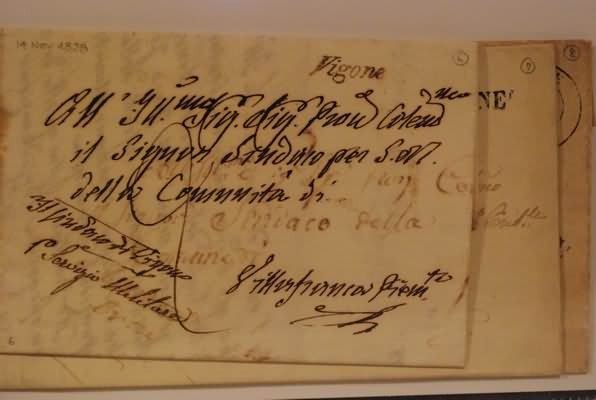 14 Nov 1838
6
7
8
Vigone
NE
All' Ill.mo Sig. Sig. Pron Colend.mo
il Signor Sindaco per S.M.
della Comunità di
Sindaco della
Villafranca Piem.te
Il Sindaco di Vigone
p. Servizio Militare
6